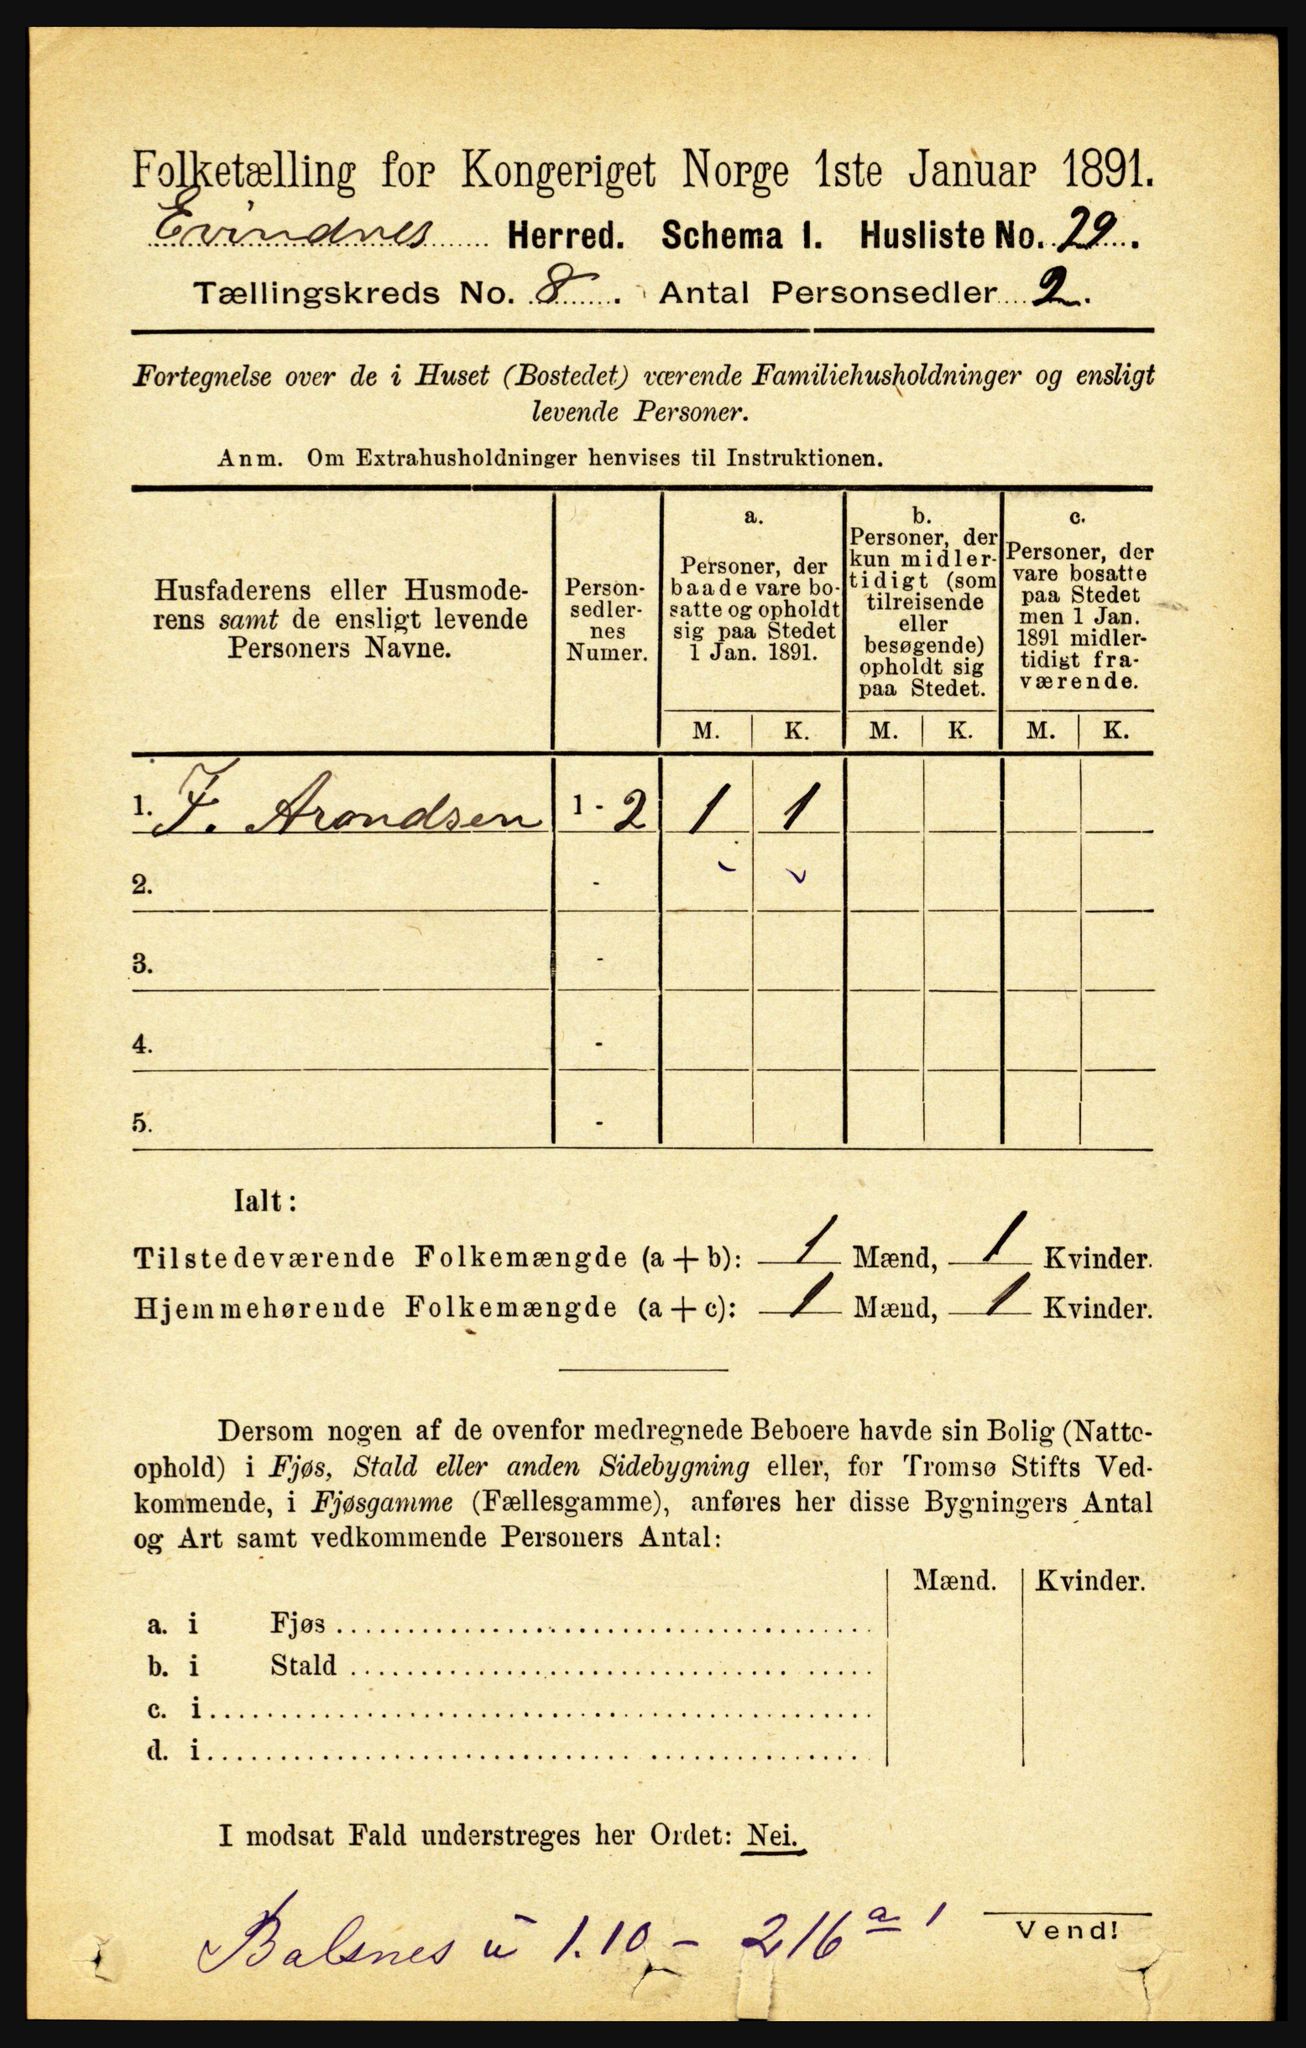 Folketælling for Kongeriget Norge 1ste Januar 1891.
Evindnes Herred. Schema 1. Husliste No. 29.
Tællingskreds No. 8. Antal Personsedler 2.
Fortegnelse over de i Huset (Bostedet) værende Familiehusholdninger og ensligt
levende Personer.
Anm. Om Extrahusholdninger henvises til Instruktionen.
Husfaderens eller Husmode-
rens samt de ensligt levende
Personers Navne.
Person-
sedler-
nes
Numer.
a.
Personer, der
baade vare bo-
satte og opholdt
sig paa Stedet
1 Jan. 1891.
b.
Personer, der
kun midler-
tidigt (som
tilreisende
eller
besøgende)
opholdt sig
paa Stedet.
c.
Personer, der
vare bosatte
paa Stedet
men 1 Jan.
1891 midler-
tidigt fra-
værende.
M. K. M. K. M. K.
1. J. Arondsen 1 - 2 1 1
2. -
3. -
4. -
5. -
Ialt:
Tilstedeværende Folkemængde (a + b): 1 Mænd, 1 Kvinder.
Hjemmehørende Folkemængde (a + c): 1 Mænd, 1 Kvinder.
Dersom nogen af de ovenfor medregnede Beboere havde sin Bolig (Natte-
ophold) i Fjøs, Stald eller anden Sidebygning eller, for Tromsø Stifts Ved-
kommende, i Fjøsgamme (Fællesgamme), anføres her disse Bygningers Antal
og Art samt vedkommende Personers Antal:
Mænd. Kvinder.
a. i Fjøs
b. i Stald
c. i
d. i
I modsat Fald understreges her Ordet: Nei.
Balsnes u 1.10 - 216 a 1
Vend!